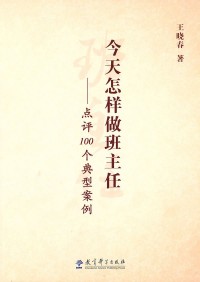 王晓春 著
今天怎样做班主任
——点评100个典型案例
教育科学出版社